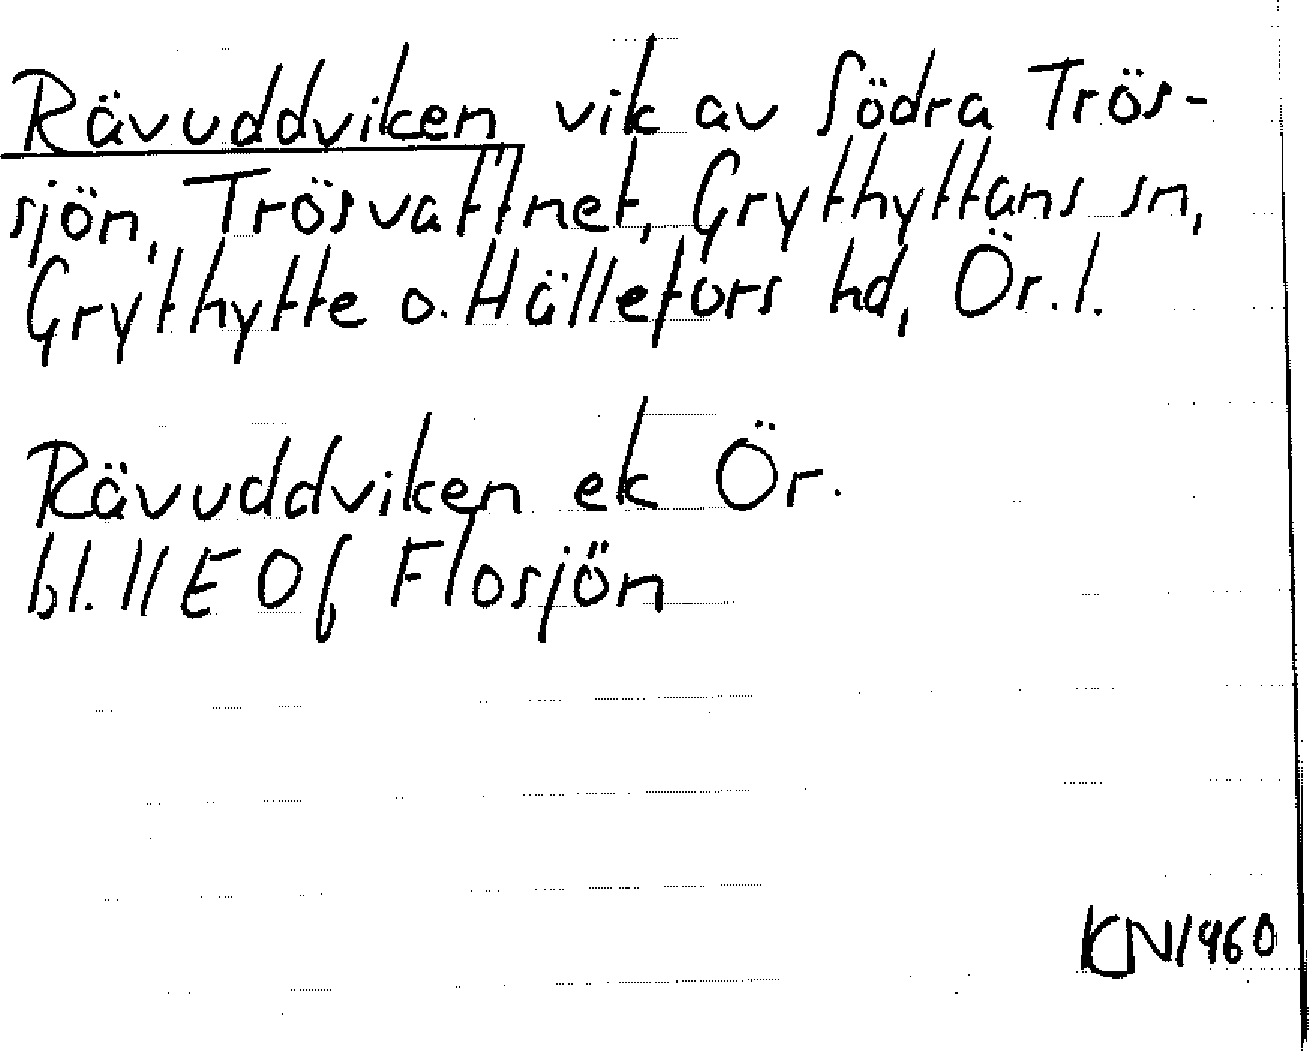 Rävuddviken vik av Södra Trös-
sjön, Trösvattnet, Grythyttans sn,
Grythytte o. Hällefors hd, Ör. l.
Rävuddviken ek Ör.
bl. 11E 0f Flosjön
KN 1960